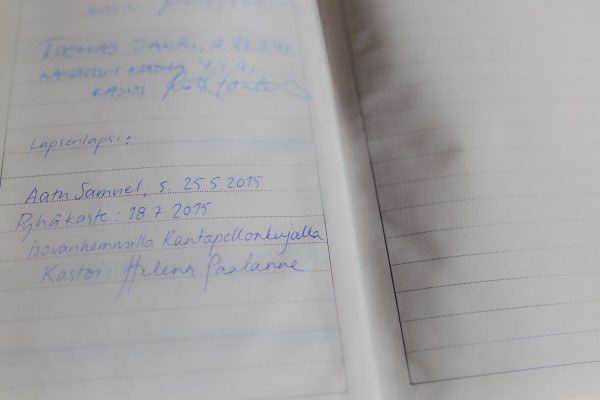 TUOMAS SAKRI, s.
KASTETTIIN KOTONA
KASTOI
Lapsenlapsi:
Aatu Samuel, s. 25.5 2015
Pyhä kaste: 18.7 2015
isovanhemmilla Rantapellonkujalla
Kastoi Helena Paalanne